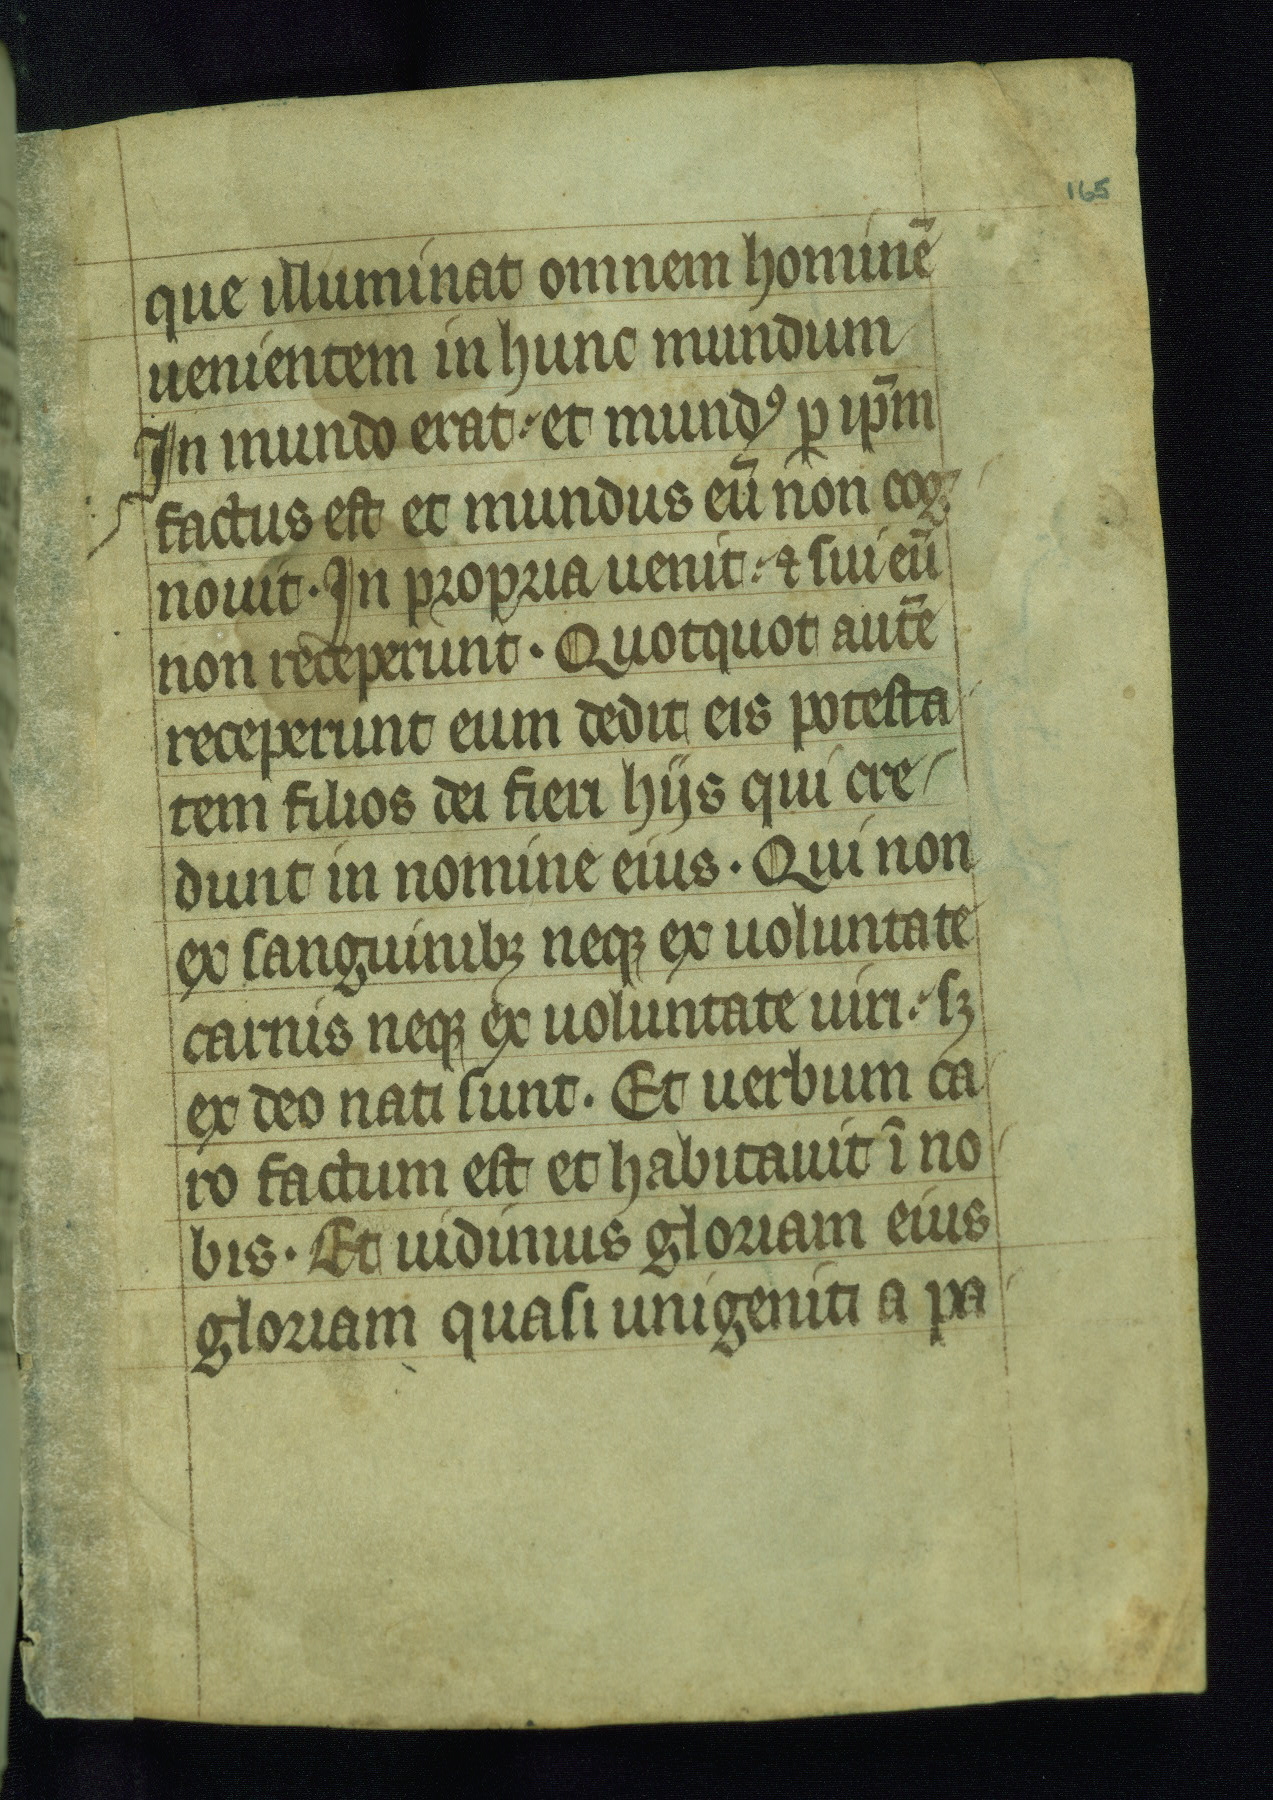 165
que illuminat omnem hominē
uenientem in hunc mundum
In mundo erat : et mundꝰ ꝑ ip̄m
factus est et mundus eū non cog
nouit . In propria uenit : ⁊ sui eū
non receperunt . Quotquot aut̄e
receperunt eum dedit eis potesta
tem filios dei fieri hijs qui cre
dunt in nomine eius . Qui non
ex sanguinibꝫ neqꝫ ex uoluntate
carnis neqꝫ ex uoluntate uiri : sꝫ
ex deo nati sunt . Et uerbum ca
ro factum est et habitauit ī no
bis . Et uidimus gloriam eius
gloriam quasi unigeniti a pa